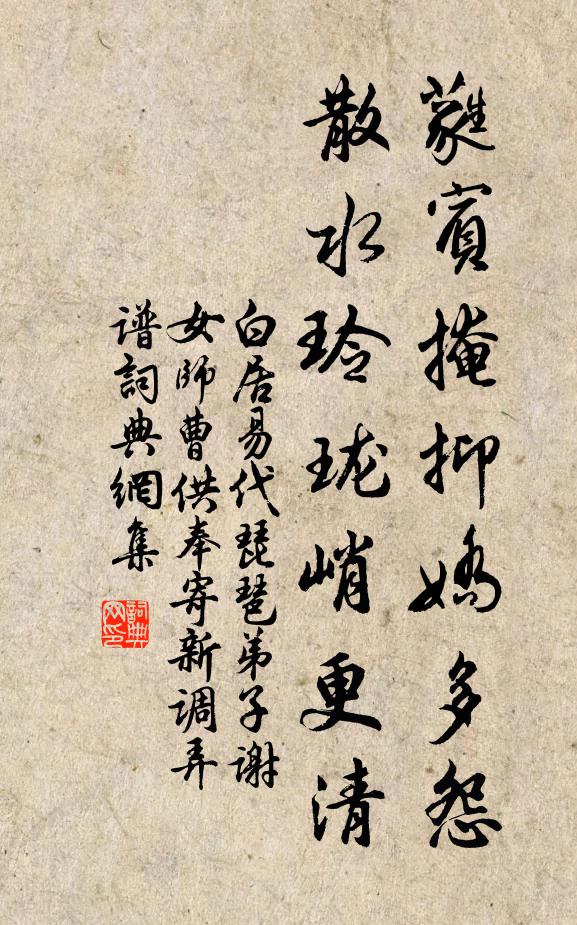 蕤賓掩抑嬌多怨
散水玲瓏峭更清
白居易代琵琶弟子謝
女師曹供奉寄新调弄
谱詞典網集
詞典
网印